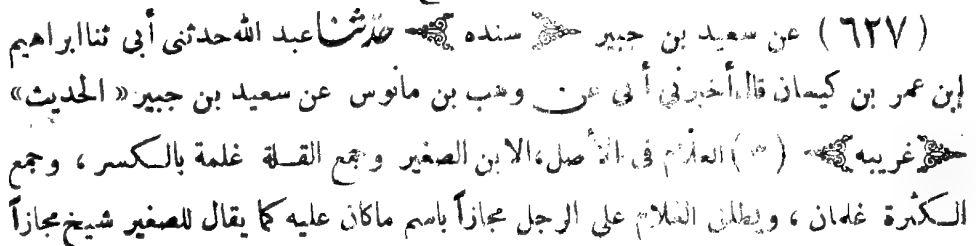 (٦٢٧) عن سعيد بن جبير ﴿سنده﴾ حدثنا عبد الله حدثنى أبى ثنا ابراهيم
إبن عمر بن كيسان قال أخبرنى أبى عن وهب بن مانوس عن سعيد بن جبير « الحديث»
﴿غريبه﴾ ( ) الغلام فى الأصل، الابن الصغير وجمع القلة غلمة بالكسر ، وجمع
الكثرة غلمان ، ويطلق الغلام على الرجل مجازاً باسم ما كان عليه كما يقال للصغير شيخ مجازاً